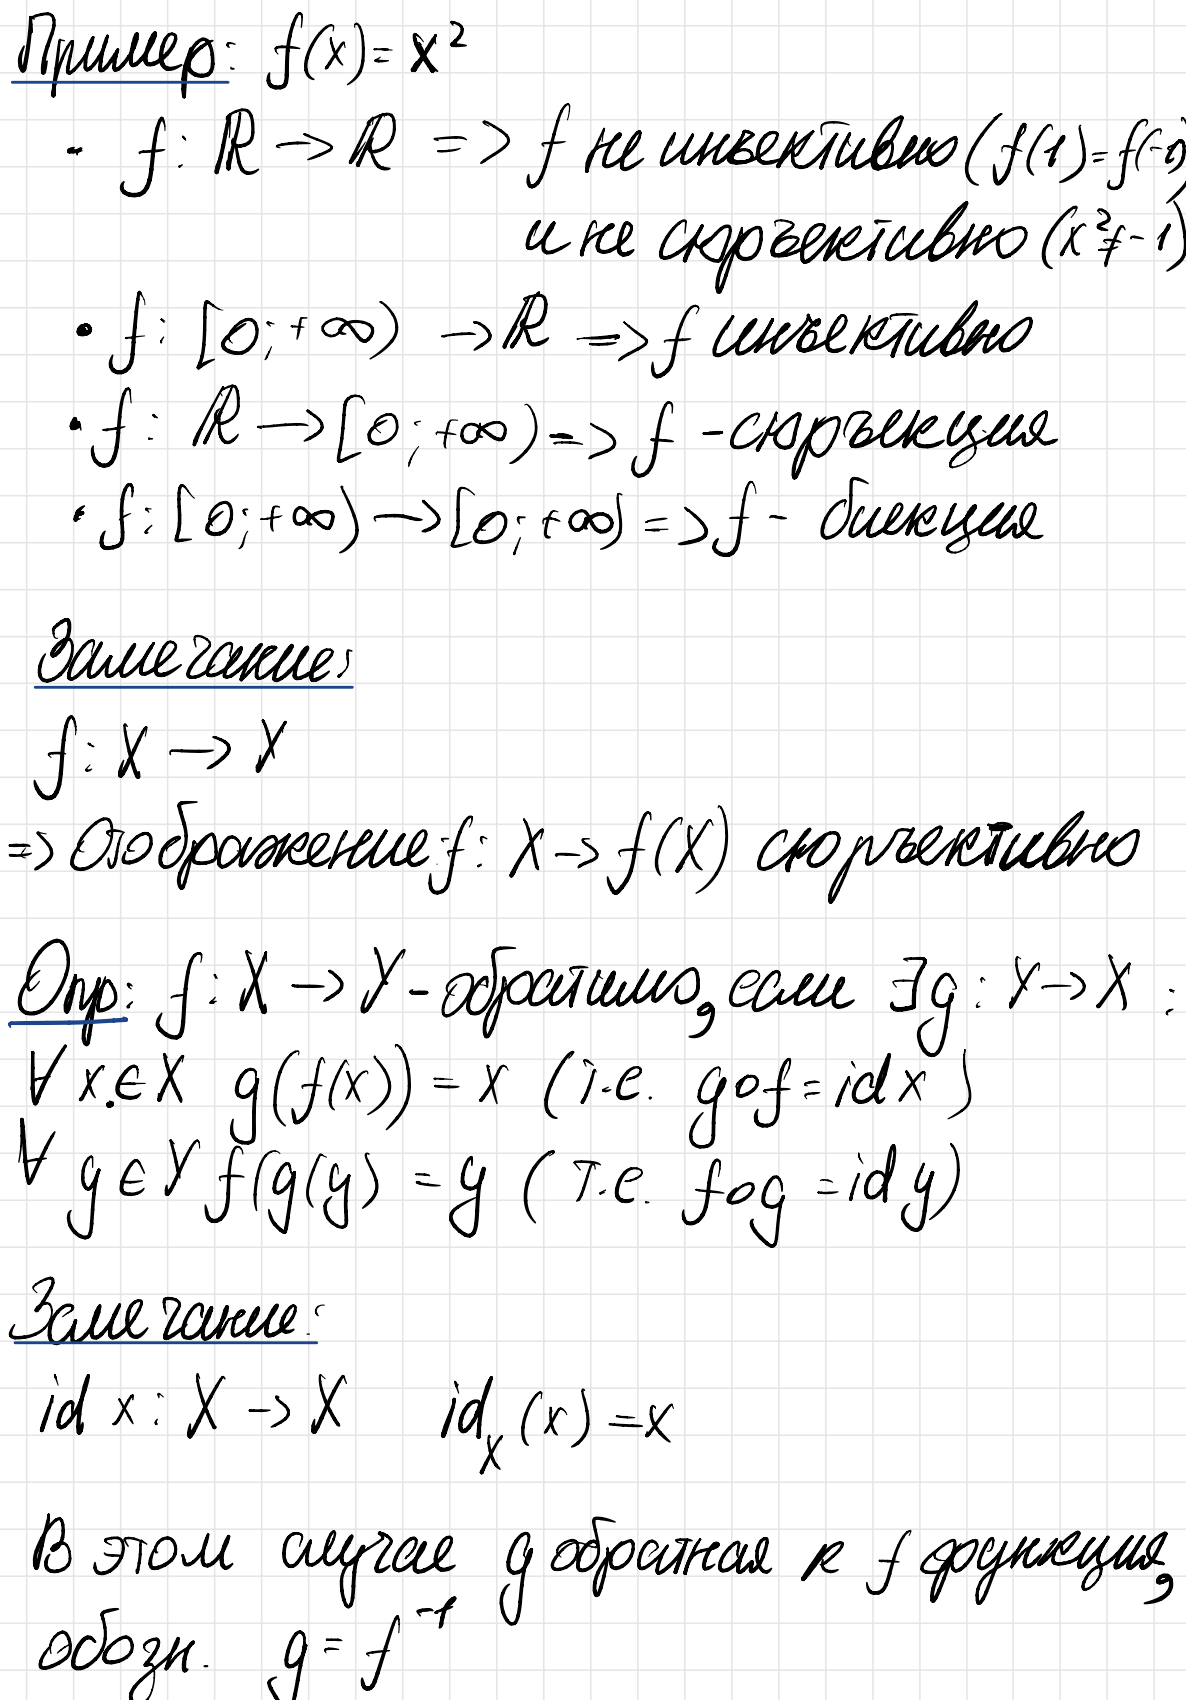 Пример: f(x) = x²
- f: ℝ → ℝ => f не инъективно (f(1) = f(-1)
и не сюръективно (x² ≠ -1)
• f: [0; +∞) → ℝ => f инъективно
• f: ℝ → [0; +∞) => f - сюръекция
• f: [0; +∞) → [0; +∞) => f - биекция
Замечание:
f: X → Y
=> Отображение f: X → f(X) сюръективно
Опр: f: X → Y - обратимо, если ∃g: Y → X :
∀ x ∈ X g(f(x)) = x (т.е. g∘f = id x)
∀ y ∈ Y f(g(y) = y (т.е. f∘g = id y)
Замечание:
id x: X → X id_X (x) = x
В этом случае g обратная к f функция,
обозн. g = f⁻¹